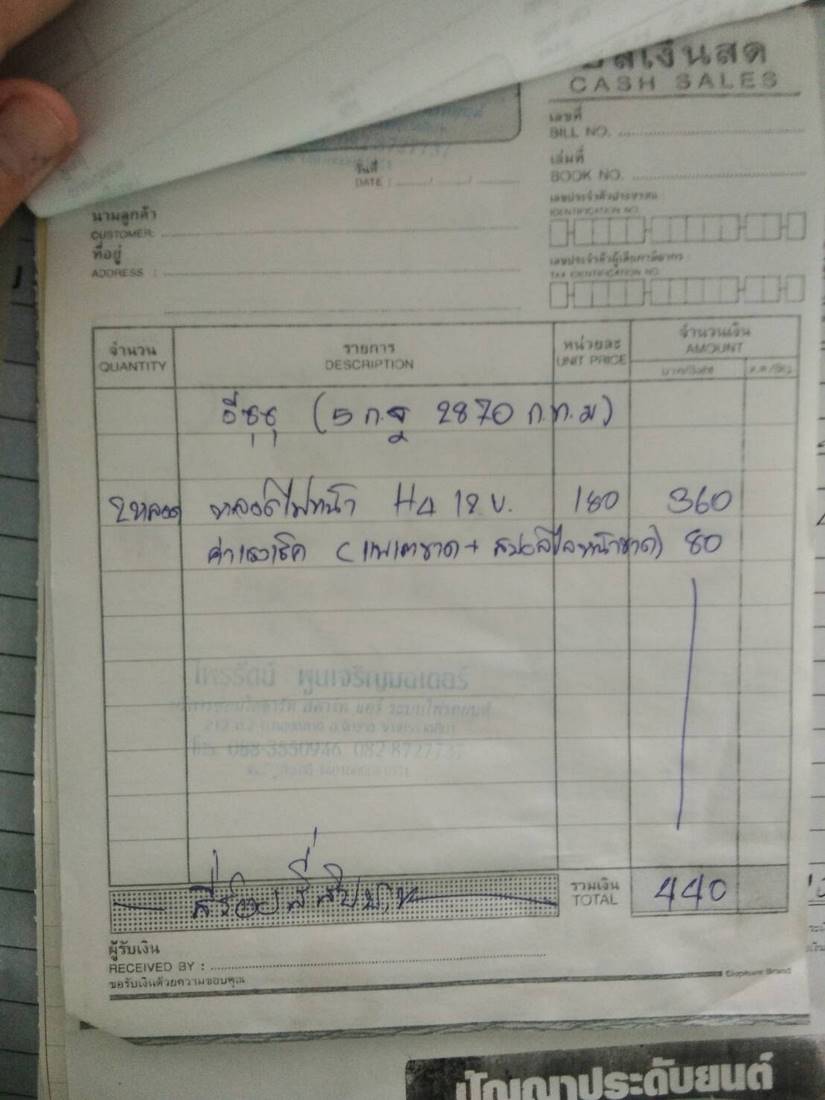 บิลเงินสด
CASH SALES
เลขที่
BILL NO.
เล่มที่
BOOK NO.
วันที่
DATE : ....../....../......
เลขประจำตัวประชาชน
IDENTIFICATION NO.
นามลูกค้า
CUSTOMER:
ที่อยู่
ADDRESS :
เลขประจำตัวผู้เสียภาษีอากร
TAX IDENTIFICATION NO.
จำนวน รายการ หน่วยละ จำนวนเงิน
QUANTITY DESCRIPTION UNIT PRICE AMOUNT
บาท/Baht ส.ต./Stg.
อีซูซุ (5 ก.ฐ 2870 ก.ท.ม)
2หลอด หลอดไฟหน้า H4 12 V. 180 360
ค่าแรงเช็ค ( หน้าขาด) 80
ไพรรัตน์ พูนเจริญมอเตอร์
โทร. 088-3550946 082-8727737
สี่ร้อยสี่สิบบาท
รวมเงิน
TOTAL 440
ผู้รับเงิน
RECEIVED BY :
ขอรับเงินด้วยความขอบคุณ
Elephant Brand
ปัญญาประดับยนต์